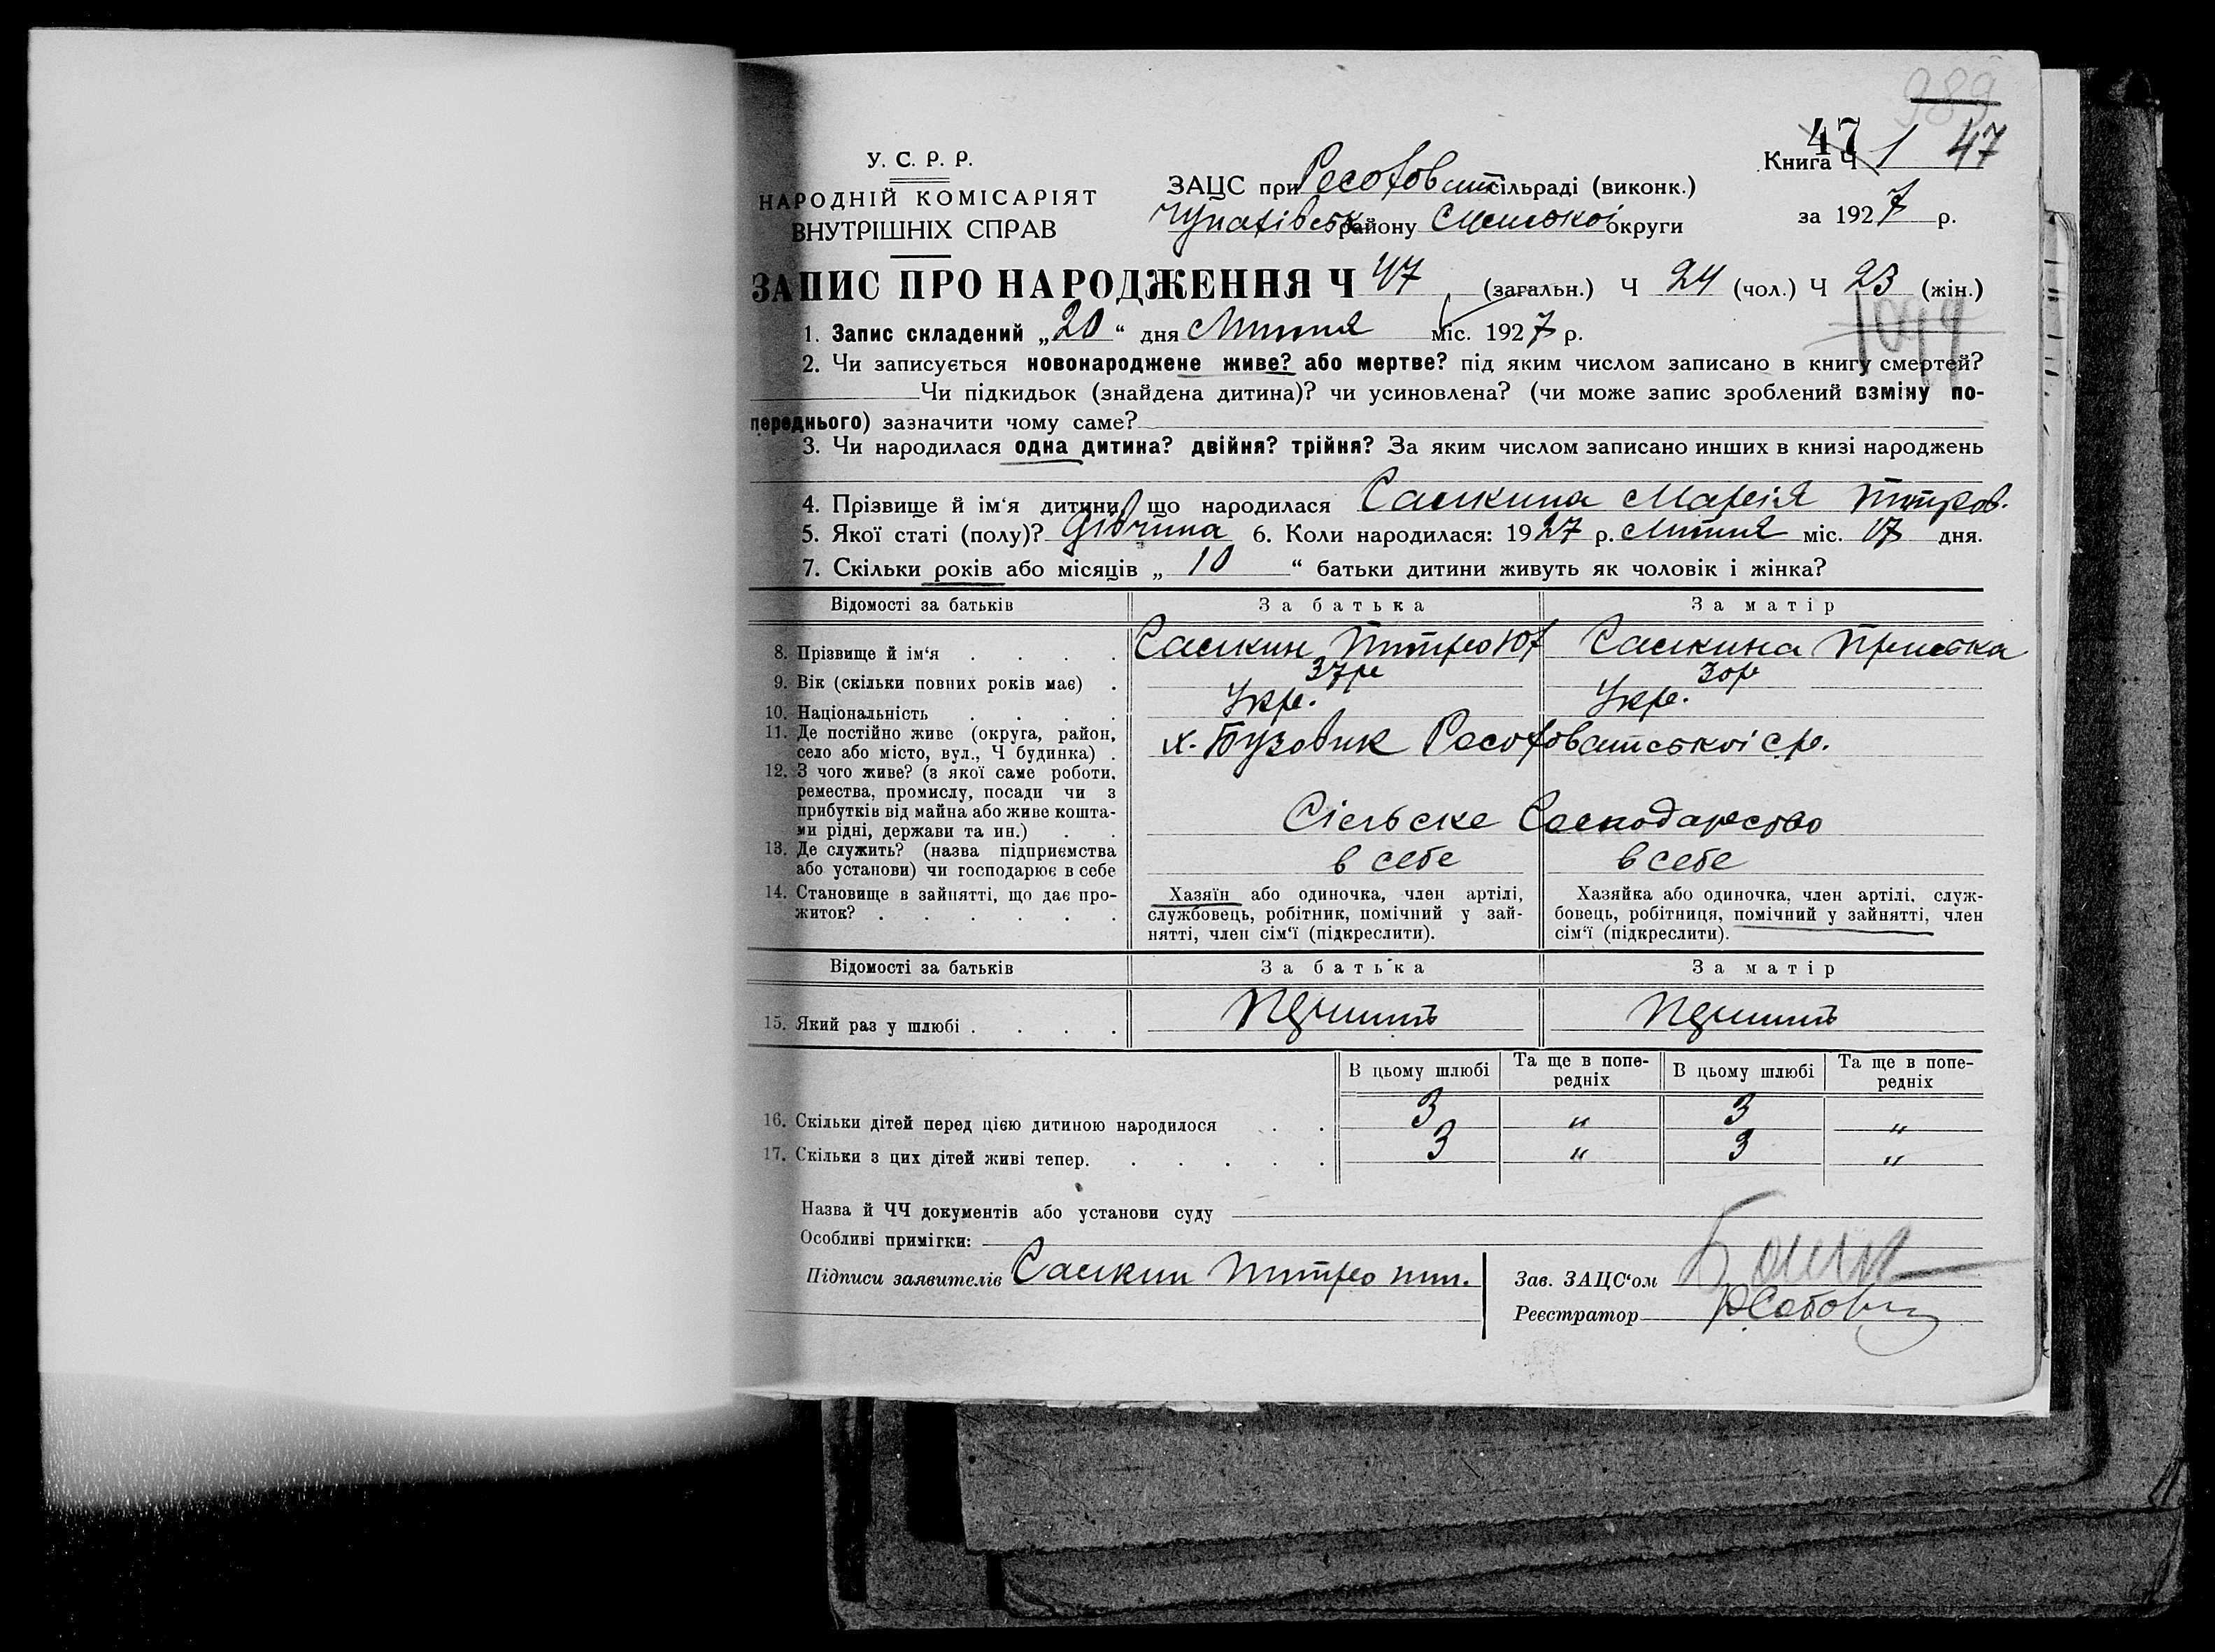 989
47
Книга Ч 1 47
У. С. Р. Р.
НАРОДНІЙ КОМІСАРІЯТ
ВНУТРІШНІХ СПРАВ
ЗАЦС при сільраді (виконк.)
району Сумської округи
за 1927 р.
ЗАПИС ПРО НАРОДЖЕННЯ Ч 47 (загальн.) Ч 24 (чол.) Ч 23 (жін.)
1. Запис складений „20“ дня Липня міс. 1927 р.
2. Чи записується новонароджене живе? або мертве? під яким числом записано в книгу смертей?
Чи підкидьок (знайдена дитина)? чи усиновлена? (чи може запис зроблений взміну по-
переднього) зазначити чому саме?
3. Чи народилася одна дитина? двійня? трійня? За яким числом записано инших в книзі народжень
4. Прізвище й ім‘я дитини, що народилася Самкина Марія Питров.
5. Якої статі (полу)? Дівчина 6. Коли народилася: 1927 р. Липня міс. 17 дня.
7. Скільки років або місяців „10“ батьки дитини живуть як чоловік і жінка?
Відомості за батьків За батька За матір
8. Прізвище й ім‘я . . . . Самкин Питро Самкина
9. Вік (скільки повних років має) . 37р 30р
10. Національність . . . . Укр. Укр.
11. Де постійно живе (округа, район,
село або місто, вул., Ч будинка) . х. Бузовик с/р.
12. З чого живе? (з якої саме роботи,
ремества, промислу, посади чи з
прибутків від майна або живе кошта-
ми рідні, держави та ин.) . . Сільське Господарство
13. Де служить? (назва підприємства
або установи) чи господарює в себе в себе в себе
14. Становище в зайнятті, що дає про-
житок? . . . . . .
Хазяїн або одиночка, член артілі,
службовець, робітник, помічний у зай-
нятті, член сім‘ї (підкреслити).
Хазяйка або одиночка, член артілі, служ-
бовець, робітниця, помічний у зайнятті, член
сім‘ї (підкреслити).
Відомості за батьків За батька За матір
15. Який раз у шлюбі . . . .
В цьому шлюбі Та ще в попе-
редніх В цьому шлюбі Та ще в попе-
редніх
16. Скільки дітей перед цією дитиною народилося . . 3 „ 3 „
17. Скільки з цих дітей живі тепер. . . . . . 3 „ 3 „
Назва й ЧЧ документів або установи суду
Особливі примітки:
Підписи заявителів Самкин Питро
Зав. ЗАЦС‘ом
Реєстратор